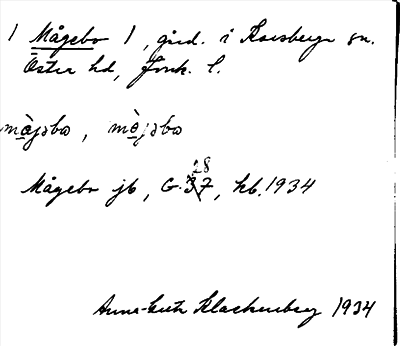 1 Mågebo 1, gård. i Korsberga sn.
Öster hd, Jönk. l.
mòjəbo, mòjəbo
28
Mågebo jb, G. 37, hb. 1934
Anna-Lisa Klackenberg 1934